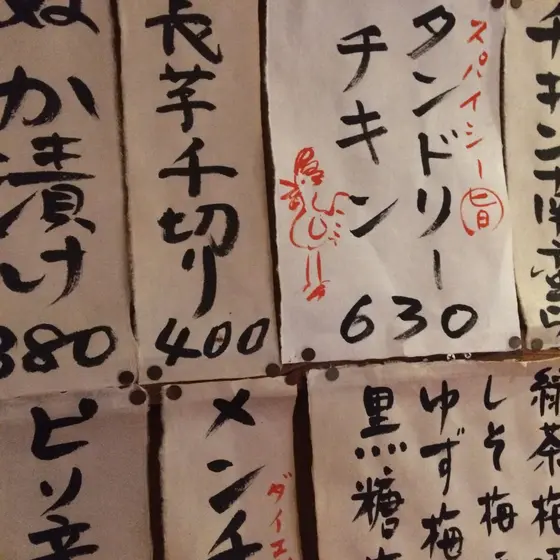 チキン南蛮
スパイシー旨
タンドリー
チキン
630
長芋千切り
400
ぬか漬け
380
緑茶梅
しそ梅
ゆず梅
黒糖
ダイエ
メンチ
ピリ辛